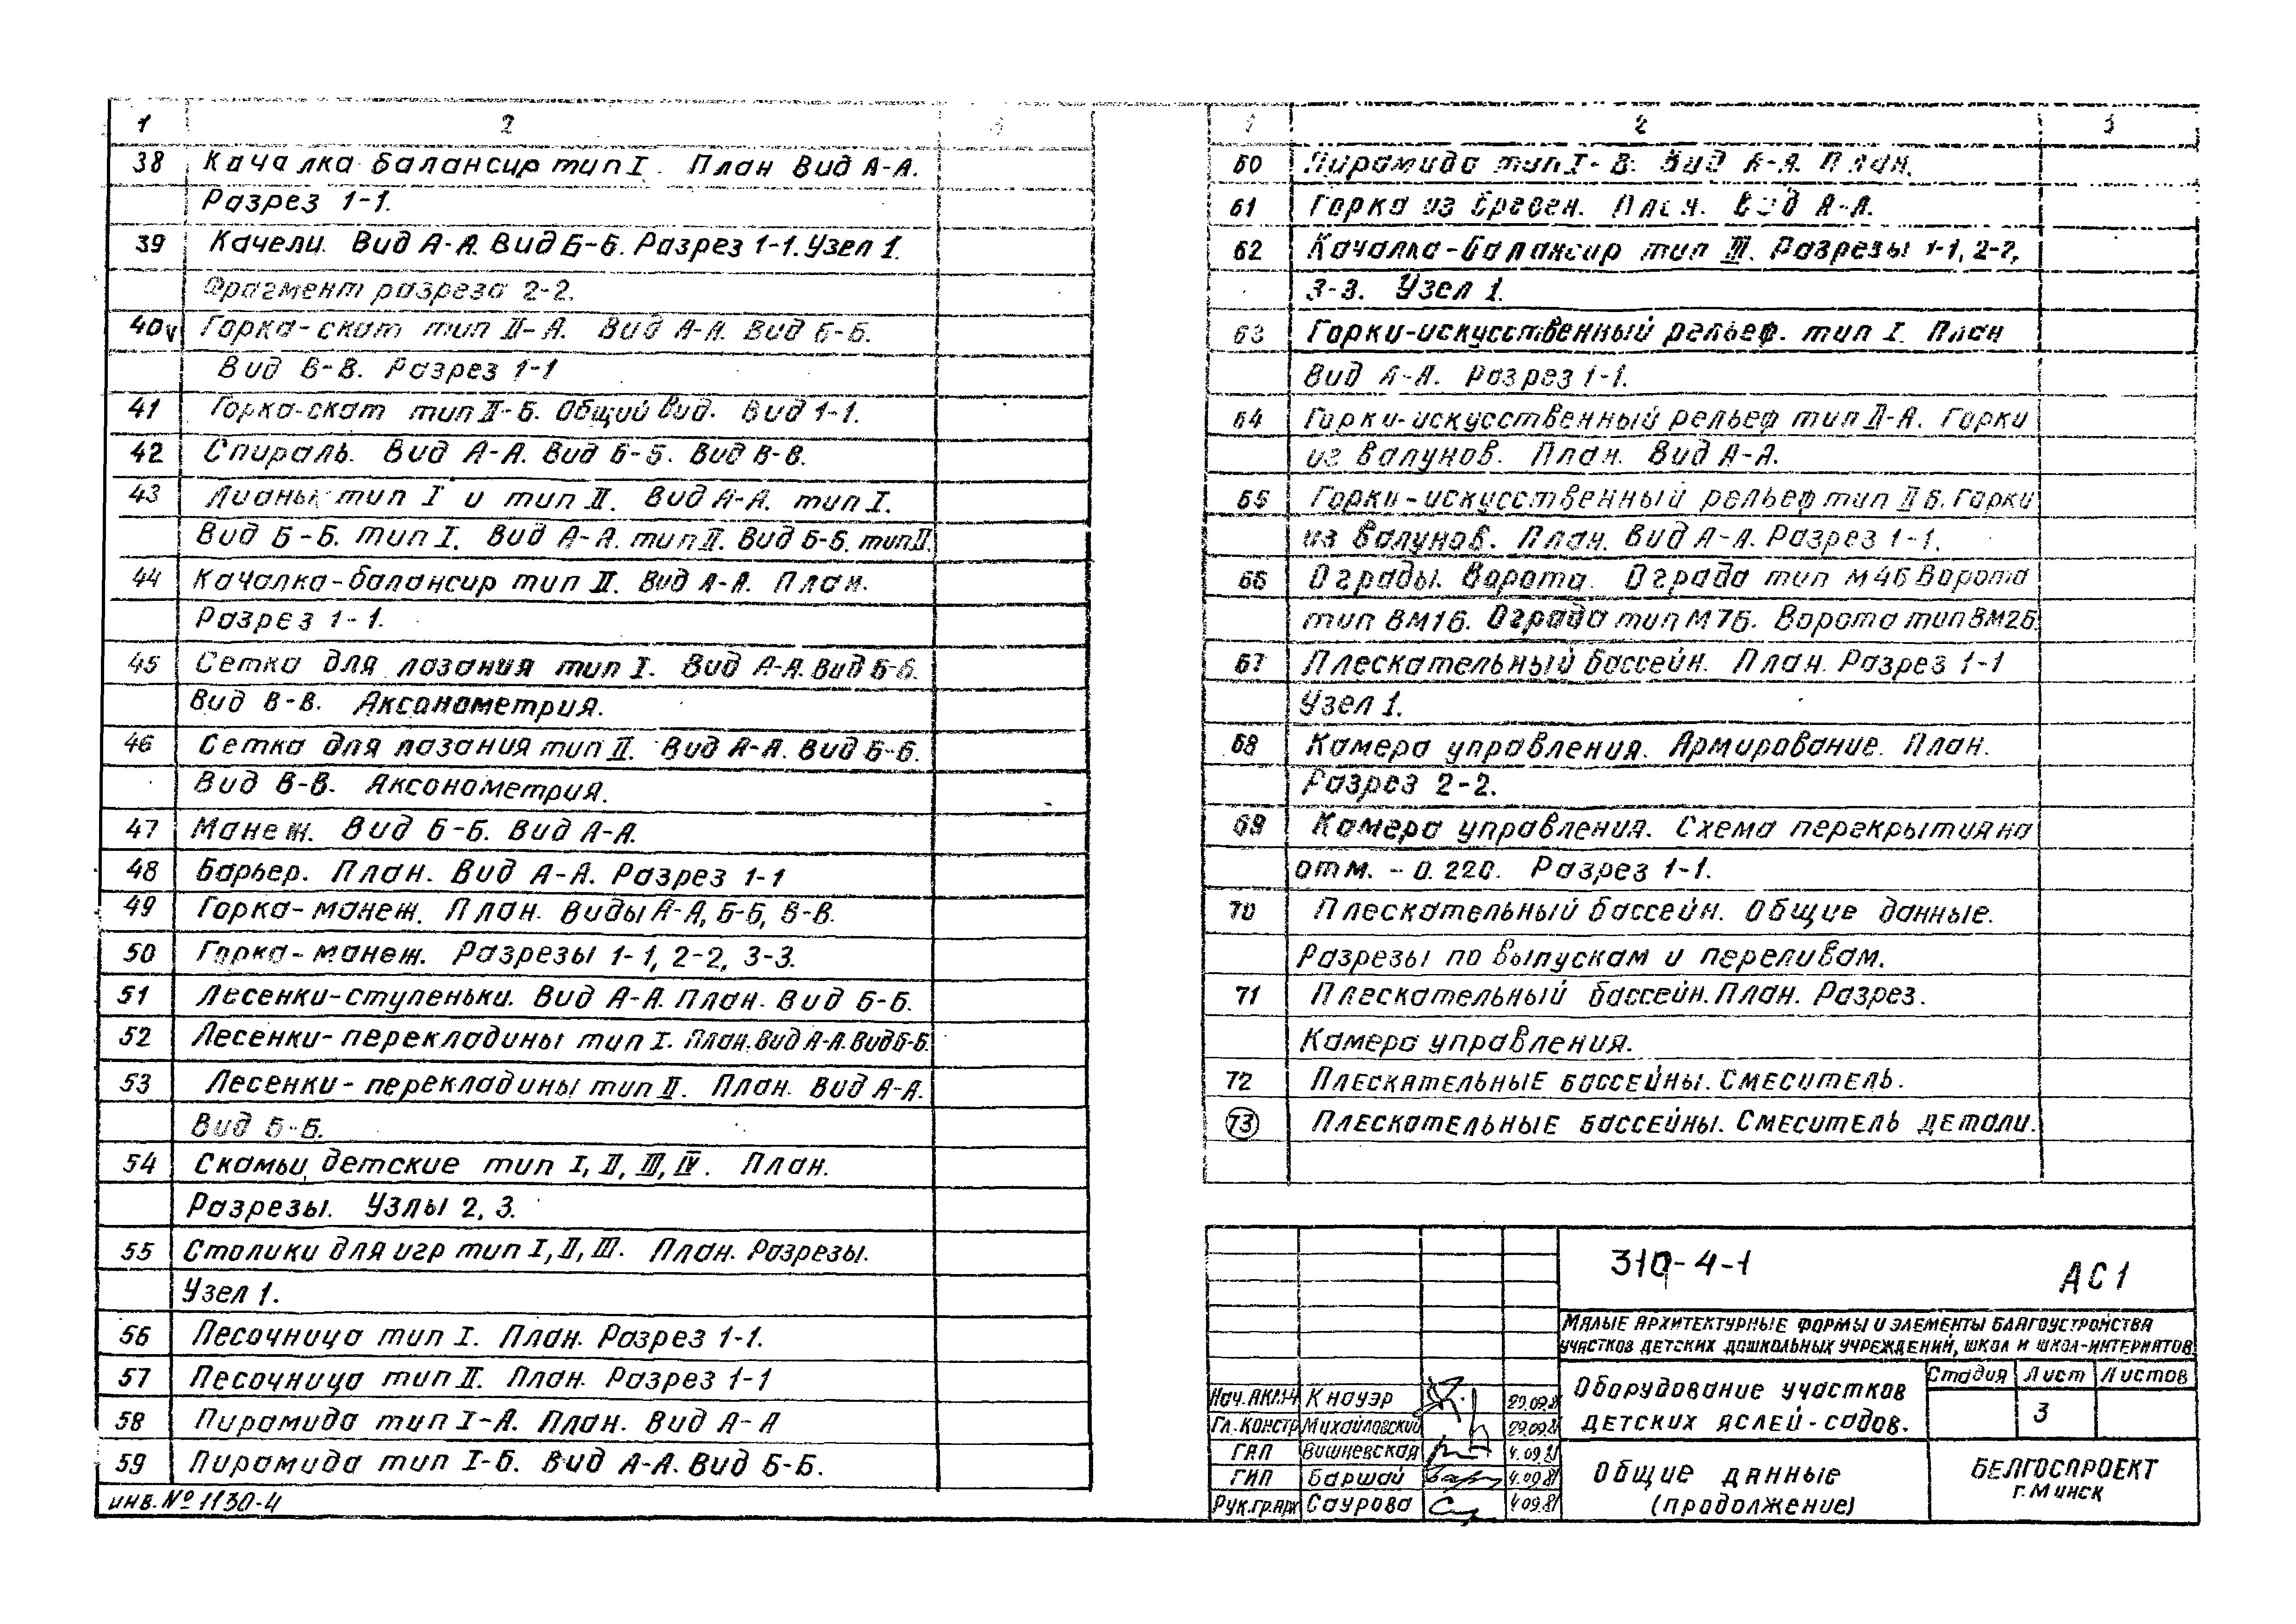 1 2 3
38 Качалка балансир тип I. План Вид А-А.
Разрез 1-1.
39 Качели. Вид А-А. Вид Б-Б. Разрез 1-1. Узел 1.
Фрагмент разреза 2-2.
40 Горка-скат тип II-А. Вид А-А. Вид Б-Б.
Вид В-В. Разрез 1-1
41 Горка-скат тип II-Б. Общий вид. Вид 1-1.
42 Спираль. Вид А-А. Вид Б-Б. Вид В-В.
43 Лианы тип I и тип II. Вид А-А. тип I.
Вид Б-Б. тип I. Вид А-А. тип II. Вид Б-Б. тип II.
44 Качалка-балансир тип II. Вид А-А. План.
Разрез 1-1.
45 Сетка для лазания тип I. Вид А-А. Вид Б-Б.
Вид В-В. Аксонометрия.
46 Сетка для лазания тип II. Вид А-А. Вид Б-Б.
Вид В-В. Аксонометрия.
47 Манеж. Вид Б-Б. Вид А-А.
48 Барьер. План. Вид А-А. Разрез 1-1
49 Горка-манеж. План. Виды А-А, Б-Б, В-В.
50 Горка-манеж. Разрезы 1-1, 2-2, 3-3.
51 Лесенки-ступеньки. Вид А-А. План. Вид Б-Б.
52 Лесенки-перекладины тип I. План. Вид А-А. Вид Б-Б.
53 Лесенки-перекладины тип II. План. Вид А-А.
Вид Б-Б.
54 Скамьи детские тип I, II, III, IV. План.
Разрезы. Узлы 2, 3.
55 Столики для игр тип I, II, III. План. Разрезы.
Узел 1.
56 Песочница тип I. План. Разрез 1-1.
57 Песочница тип II. План. Разрез 1-1
58 Пирамида тип I-А. План. Вид А-А
59 Пирамида тип I-Б. Вид А-А. Вид Б-Б.
инв. № 1130-4
1 2 3
60 Пирамида тип I-В. Вид А-А. План.
61 Горка из бревен. План. Вид А-А.
62 Качалка-балансир тип III. Разрезы 1-1, 2-2,
3-3. Узел 1.
63 Горки-искусственный рельеф. тип I. План
Вид А-А. Разрез 1-1.
64 Горки-искусственный рельеф тип II-А. Горки
из валунов. План. Вид А-А.
65 Горки-искусственный рельеф тип II Б. Горки
из валунов. План. Вид А-А. Разрез 1-1.
66 Ограды. Ворота. Ограда тип М4Б Ворота
тип ВМ1Б. Ограда тип М7Б. Ворота тип ВМ2Б
67 Плескательный бассейн. План. Разрез 1-1
Узел 1.
68 Камера управления. Армирование. План.
Разрез 2-2.
69 Камера управления. Схема перекрытия на
отм. -0.220. Разрез 1-1.
70 Плескательный бассейн. Общие данные.
Разрезы по выпускам и переливам.
71 Плескательный бассейн. План. Разрез.
Камера управления.
72 Плескательные бассейны. Смеситель.
73 Плескательные бассейны. Смеситель детали.
310-4-1 АС1
Малые архитектурные формы и элементы благоустройства
участков детских дошкольных учреждений, школ и школ-интернатов
Оборудование участков
детских яслей-садов.
Стадия Лист Листов
3
Нач. АКМ-4 Кнауэр 29.09.81
Гл. констр Михайловский 29.09.81
ГАП Вишневская 4.09.81
ГИП Баршай 4.09.81
Рук.гр.арх Саурова 4.09.81
Общие данные
(продолжение)
БЕЛГОСПРОЕКТ
г. Минск